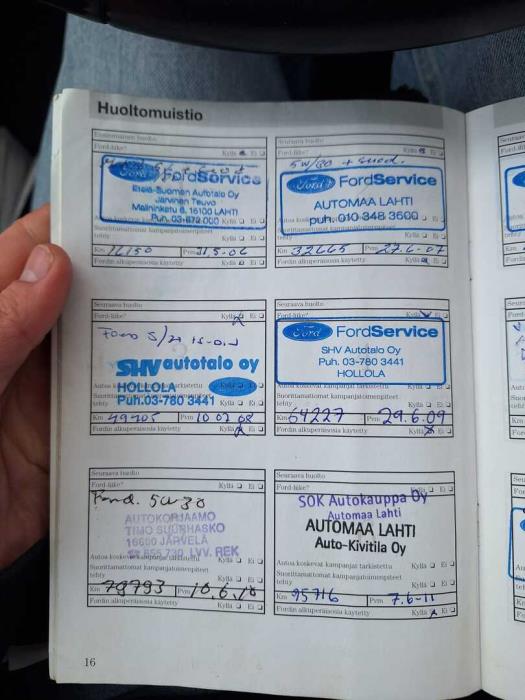 Huoltomuistio
Ensimmäinen huolto
Ford-liike? Kyllä Ei
Ford FordService
Etelä-Suomen Autotalo Oy
Järvinen Teuvo
Mallninkatu 6, 16100 LAHTI
Puh. 03-872 000
Suorittamattomat kampanjatoimenpiteet
tehty Kyllä Ei
Km 16150 Pvm 31.5-06
Fordin alkuperäisosia käytetty Kyllä Ei
Seuraava huolto
5W/30 + suod.
Ford-liike? Kyllä Ei
Ford FordService
AUTOMAA LAHTI
puh. 010 348 3600
Suorittamattomat kampanjatoimenpiteet
tehty Kyllä Ei
Km 32665 Pvm 27.6-07
Fordin alkuperäisosia käytetty Kyllä Ei
Seuraava huolto
Ford-liike? Kyllä Ei
SHV autotalo oy
HOLLOLA Ford
Puh.03-780 3441
Autoa koskevat kampanjat tarkistettu
Suorittamattomat kampanjatoimenpiteet
tehty Kyllä Ei
Km 49205 Pvm 10 07 08
Fordin alkuperäisosia käytetty Kyllä Ei
Seuraava huolto
Ford-liike? Kyllä Ei
Ford FordService
SHV Autotalo Oy
Puh. 03-780 3441
HOLLOLA
Suorittamattomat kampanjatoimenpiteet
tehty Kyllä Ei
Km 64227 Pvm 29.6.09
Fordin alkuperäisosia käytetty Kyllä Ei
Seuraava huolto
Ford-liike? Kyllä Ei
Ford. 5W30
AUTOKORJAAMO
TIMO SUURHASKO
16600 JÄRVELÄ
☎ 655 730 LVV. REK
Autoa koskevat kampanjat tarkistettu Kyllä Ei
Suorittamattomat kampanjatoimenpiteet
tehty Kyllä Ei
Km 78793 Pvm 10.6.10
Fordin alkuperäisosia käytetty Kyllä Ei
Seuraava huolto
Ford-liike? Kyllä Ei
SOK Autokauppa Oy
Automaa Lahti
AUTOMAA LAHTI
Auto-Kivitila Oy
Autoa koskevat kampanjat tarkistettu Kyllä Ei
Suorittamattomat kampanjatoimenpiteet
tehty Kyllä Ei
Km 95716 Pvm 7.6-11
Fordin alkuperäisosia käytetty Kyllä Ei
16